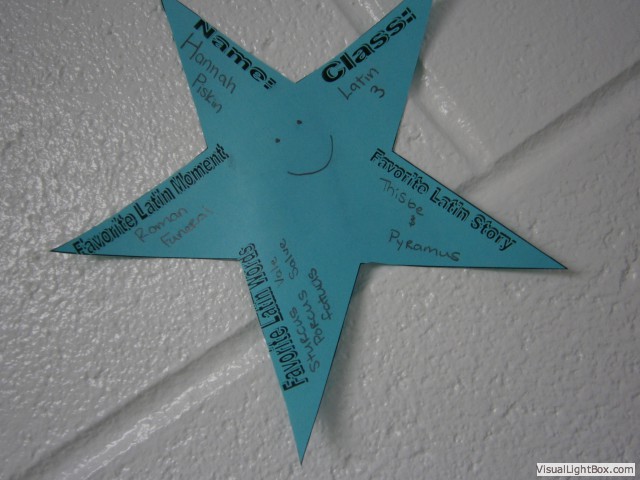 Name:
Hannah
Piskin
Class:
Latin
3
Favorite Latin Moment
Roman
Funeral
Favorite Latin Story
Thisbe
&
Pyramus
Favorite Latin Words
Sturcus Vale
Porcus Salve
VisualLightBox.com